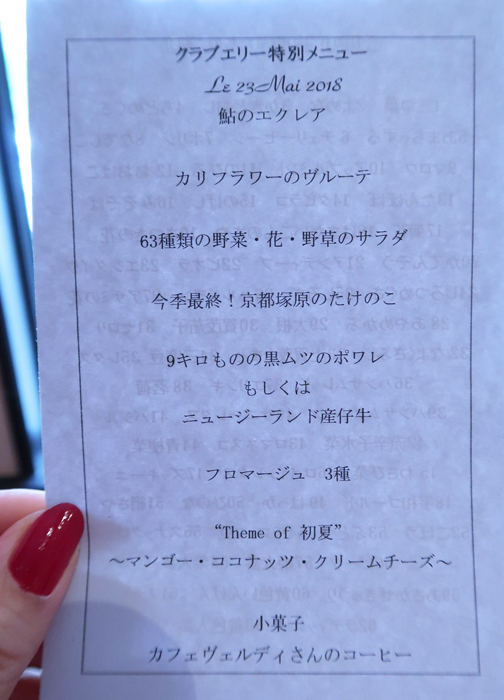 クラブエリー特別メニュー
Le 23 Mai 2018
鮎のエクレア
カリフラワーのヴルーテ
63種類の野菜・花・野草のサラダ
今季最終！京都塚原のたけのこ
9キロものの黒ムツのポワレ
もしくは
ニュージーランド産仔牛
フロマージュ　3種
“Theme of 初夏”
～マンゴー・ココナッツ・クリームチーズ～
小菓子
カフェヴェルディさんのコーヒー